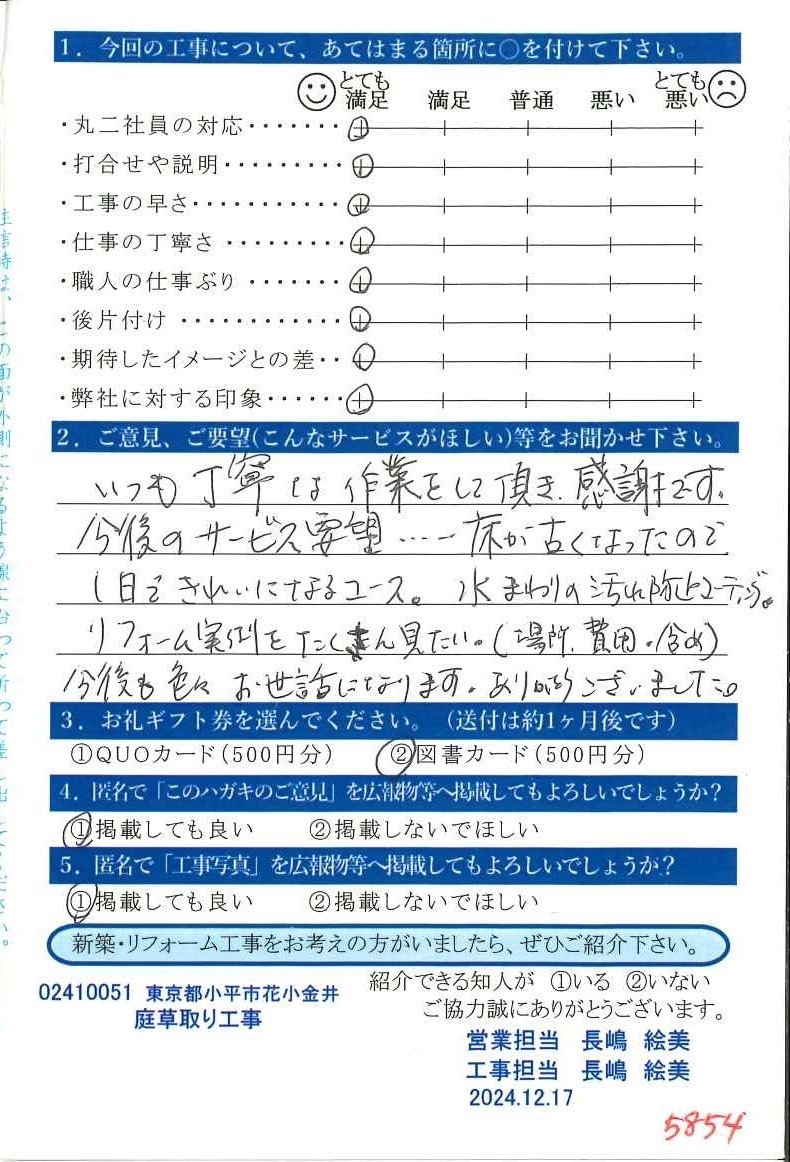 1. 今回の工事について、あてはまる箇所に○を付けて下さい。
とても満足 満足 普通 悪い とても悪い
・丸二社員の対応・・・・・・・
・打合せや説明・・・・・・・・・
・工事の早さ・・・・・・・・・・・
・仕事の丁寧さ・・・・・・・・・
・職人の仕事ぶり・・・・・・・
・後片付け・・・・・・・・・・・・
・期待したイメージとの差・・
・弊社に対する印象・・・・・・
2. ご意見、ご要望(こんなサービスがほしい)等をお聞かせ下さい。
いつも丁寧な作業をして頂き、感謝です。
今後のサービス要望…… 床が古くなったので
1日できれいになるコース。水まわりの汚れ防止コーティング。
リフォーム実例をたくさん見たい。(場所、費用、含め)
今後も色々お世話になります。ありがとうございました。
3. お礼ギフト券を選んでください。(送付は約1ヶ月後です)
①QUOカード(500円分) ②図書カード(500円分)
4. 匿名で「このハガキのご意見」を広報物等へ掲載してもよろしいでしょうか?
①掲載しても良い ②掲載しないでほしい
5. 匿名で「工事写真」を広報物等へ掲載してもよろしいでしょうか?
①掲載しても良い ②掲載しないでほしい
新築・リフォーム工事をお考えの方がいましたら、ぜひご紹介下さい。
紹介できる知人が ①いる ②いない
ご協力誠にありがとうございます。
02410051 東京都小平市花小金井
庭草取り工事
営業担当 長嶋 絵美
工事担当 長嶋 絵美
2024.12.17
5854